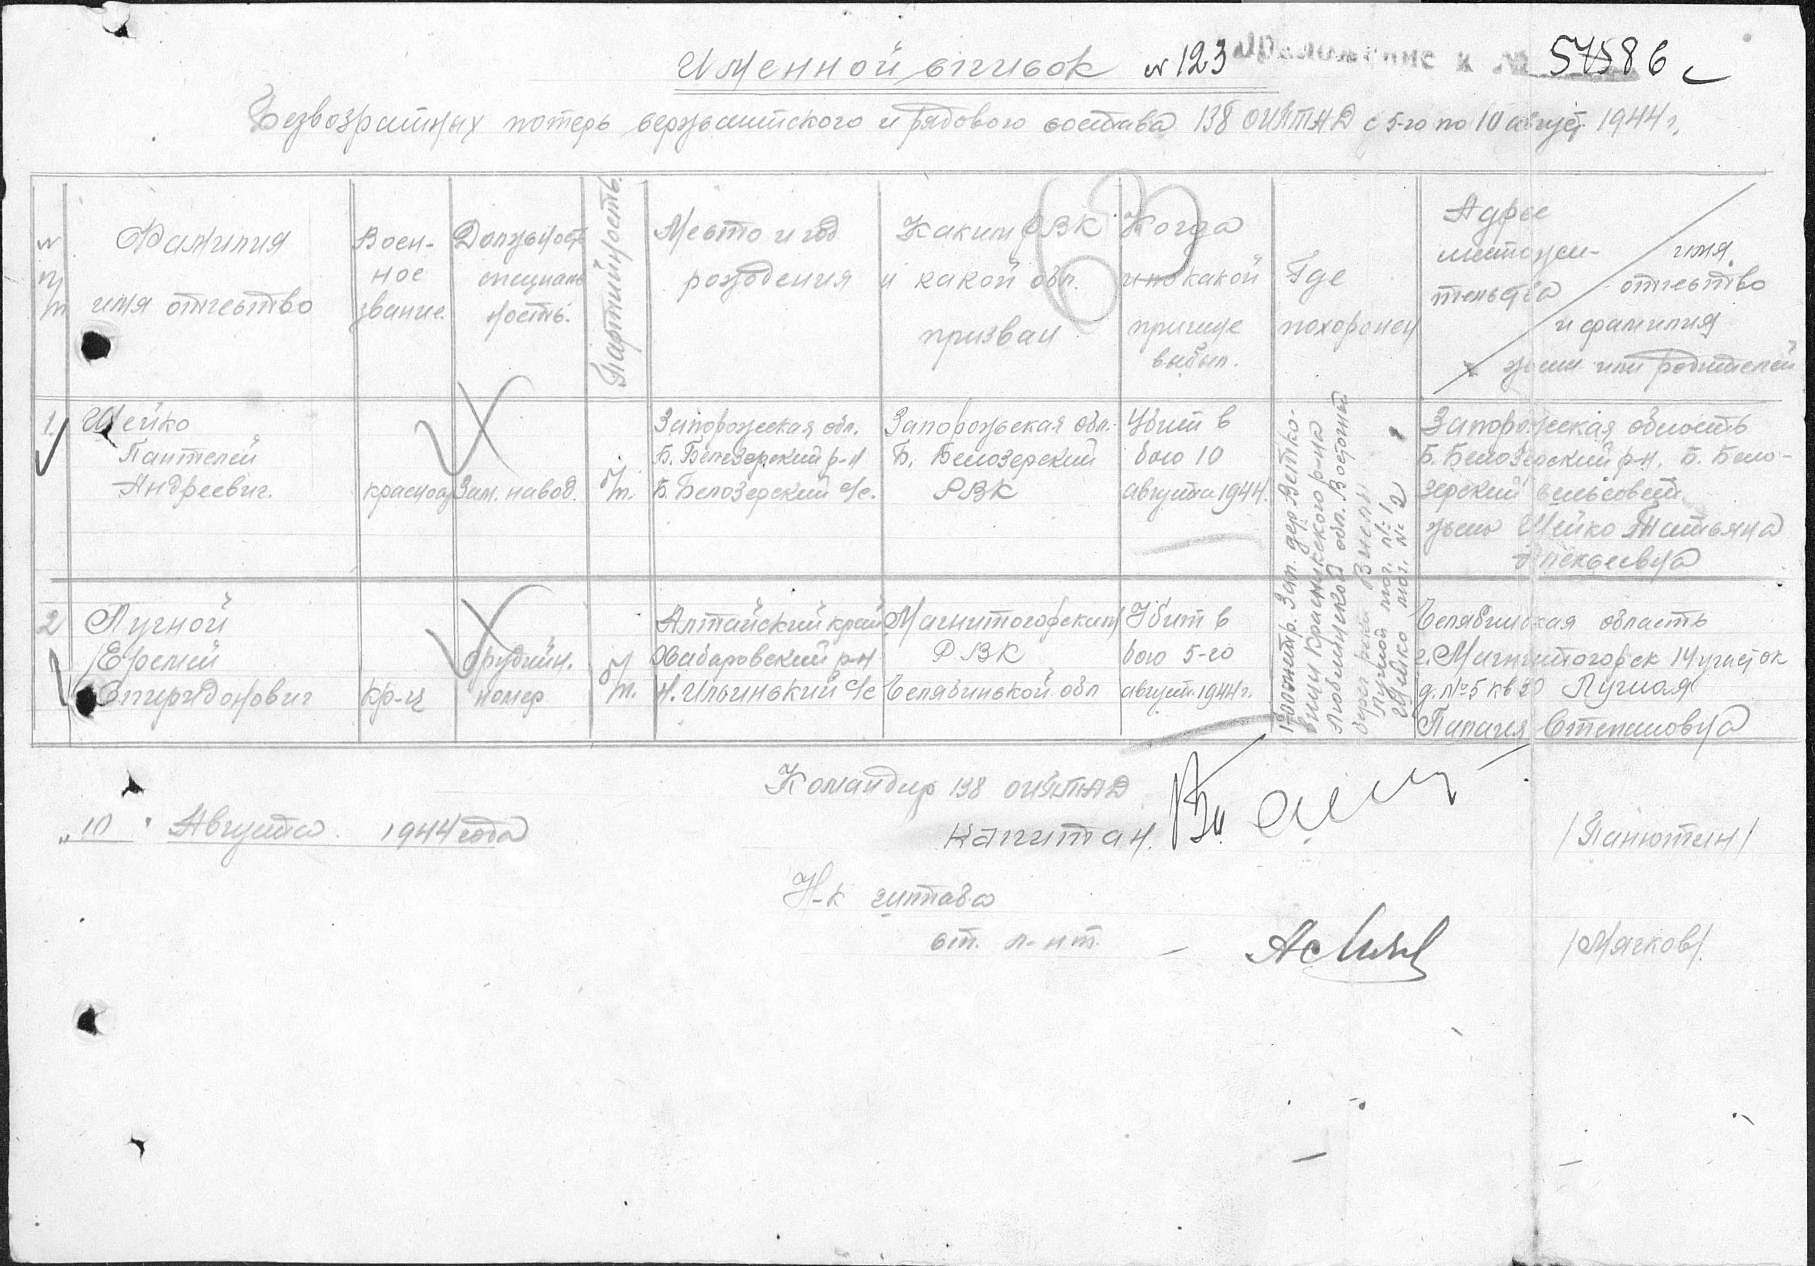 Именной список № 123 57586 с
Безвозвратных потерь сержантского и рядового состава 138 ОИПТАД с 5-го по 10 август 1944 г.
№ п/п
Фамилия
имя отчество
Воен-
ное
звание
Должность
специаль
ность.
Партийность.
Место и год
рождения
Каким РВК
и какой обл.
призван
Когда
и по какой
причине
выбыл.
Где
похоронен
Адрес
местожи-
тельства
имя
отчество
и фамилия
жены или родителей
1.
Шейко
Пантелей
Андреевич.
красноар
Зам. навод.
б/п.
Запорожская обл.
Б. Белозерский р-н
Б. Белозерский с/с.
Запорожская обл.
Б. Белозерский
РВК
Убит в
бою 10
августа 1944.
Запорожская область
Б. Белозерский р-н. Б. Бело-
зерский сельсовет
жена Шейко Татьяна
2
Лугной
Ефремий
Спиридонович
кр-ц
орудийн.
номер
б/п.
Алтайский край
Хабаровский р-н
Н. Ильинький с/с
Магнитогорским
РВК
Челябинской обл
Убит в
бою 5-го
август. 1944 г.
Челябинская область
г. Магнитогорск 14 участок
д. № 5 кв 30 Лугная
Степановна
Красникского р-на
Люблинской обл. Восточн
берег реки Вислы
Лугной мог. № 1
Шейко мог. № 2
Командир 138 ОИПТАД
капитан.
/Панютин/
„10" Августа. 1944 года
Н-к штаба
ст. л-нт.
/Мячков/.